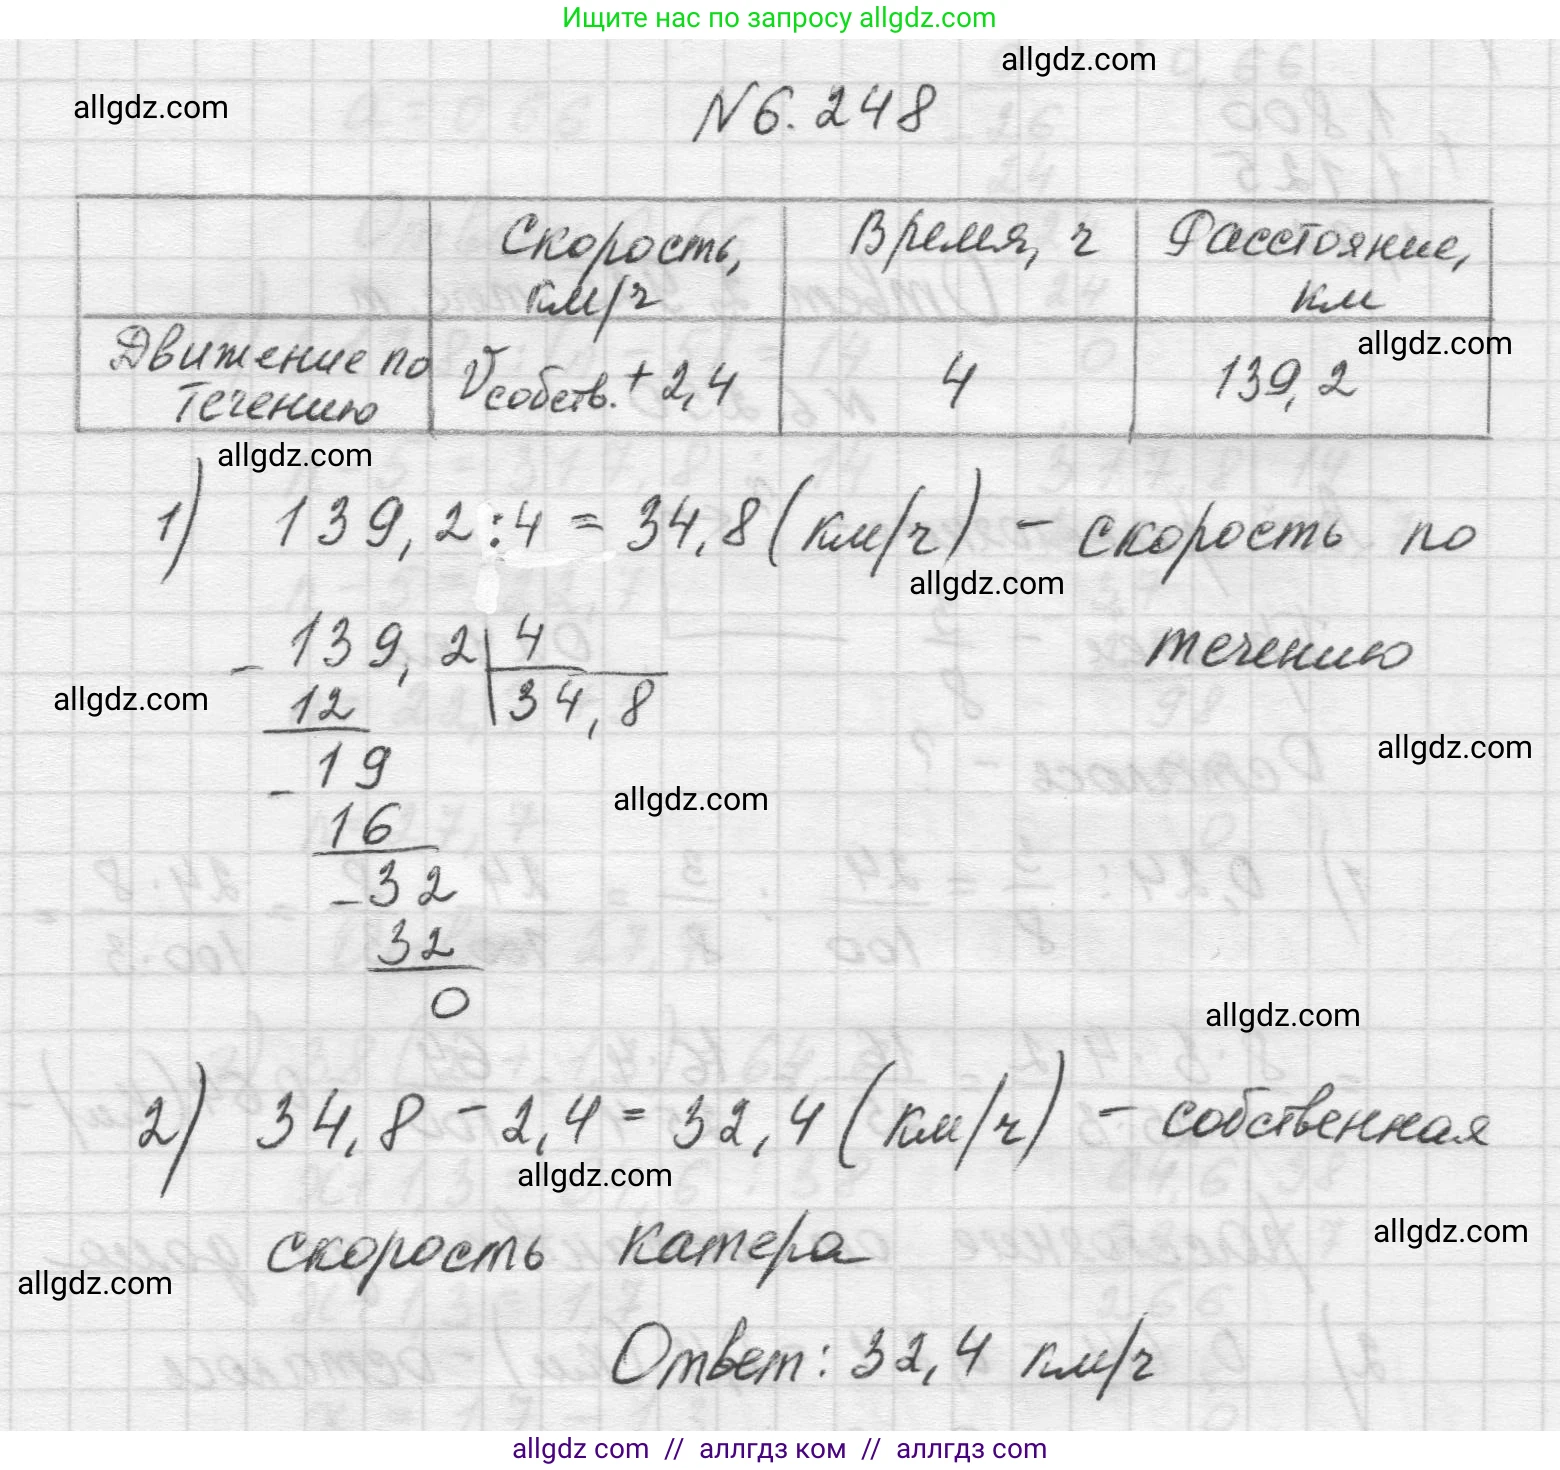 Ищите нас по запросу allgdz.com
allgdz.com
allgdz.com
№6.248
Скорость, км/ч
Время, ч
Расстояние, км
allgdz.com
Движение по течению
Vсобств. + 2,4
4
139,2
allgdz.com
1) 139,2:4 = 34,8 (км/ч) - скорость по
allgdz.com
течению
- 139,2 4
allgdz.com
12 34,8
allgdz.com
- 19
allgdz.com
16
- 32
32
0
allgdz.com
2) 34,8 - 2,4 = 32,4 (км/ч) - собственная
allgdz.com
allgdz.com
скорость катера
allgdz.com
Ответ: 32,4 км/ч
allgdz com // аллгдз ком // аллгдз com